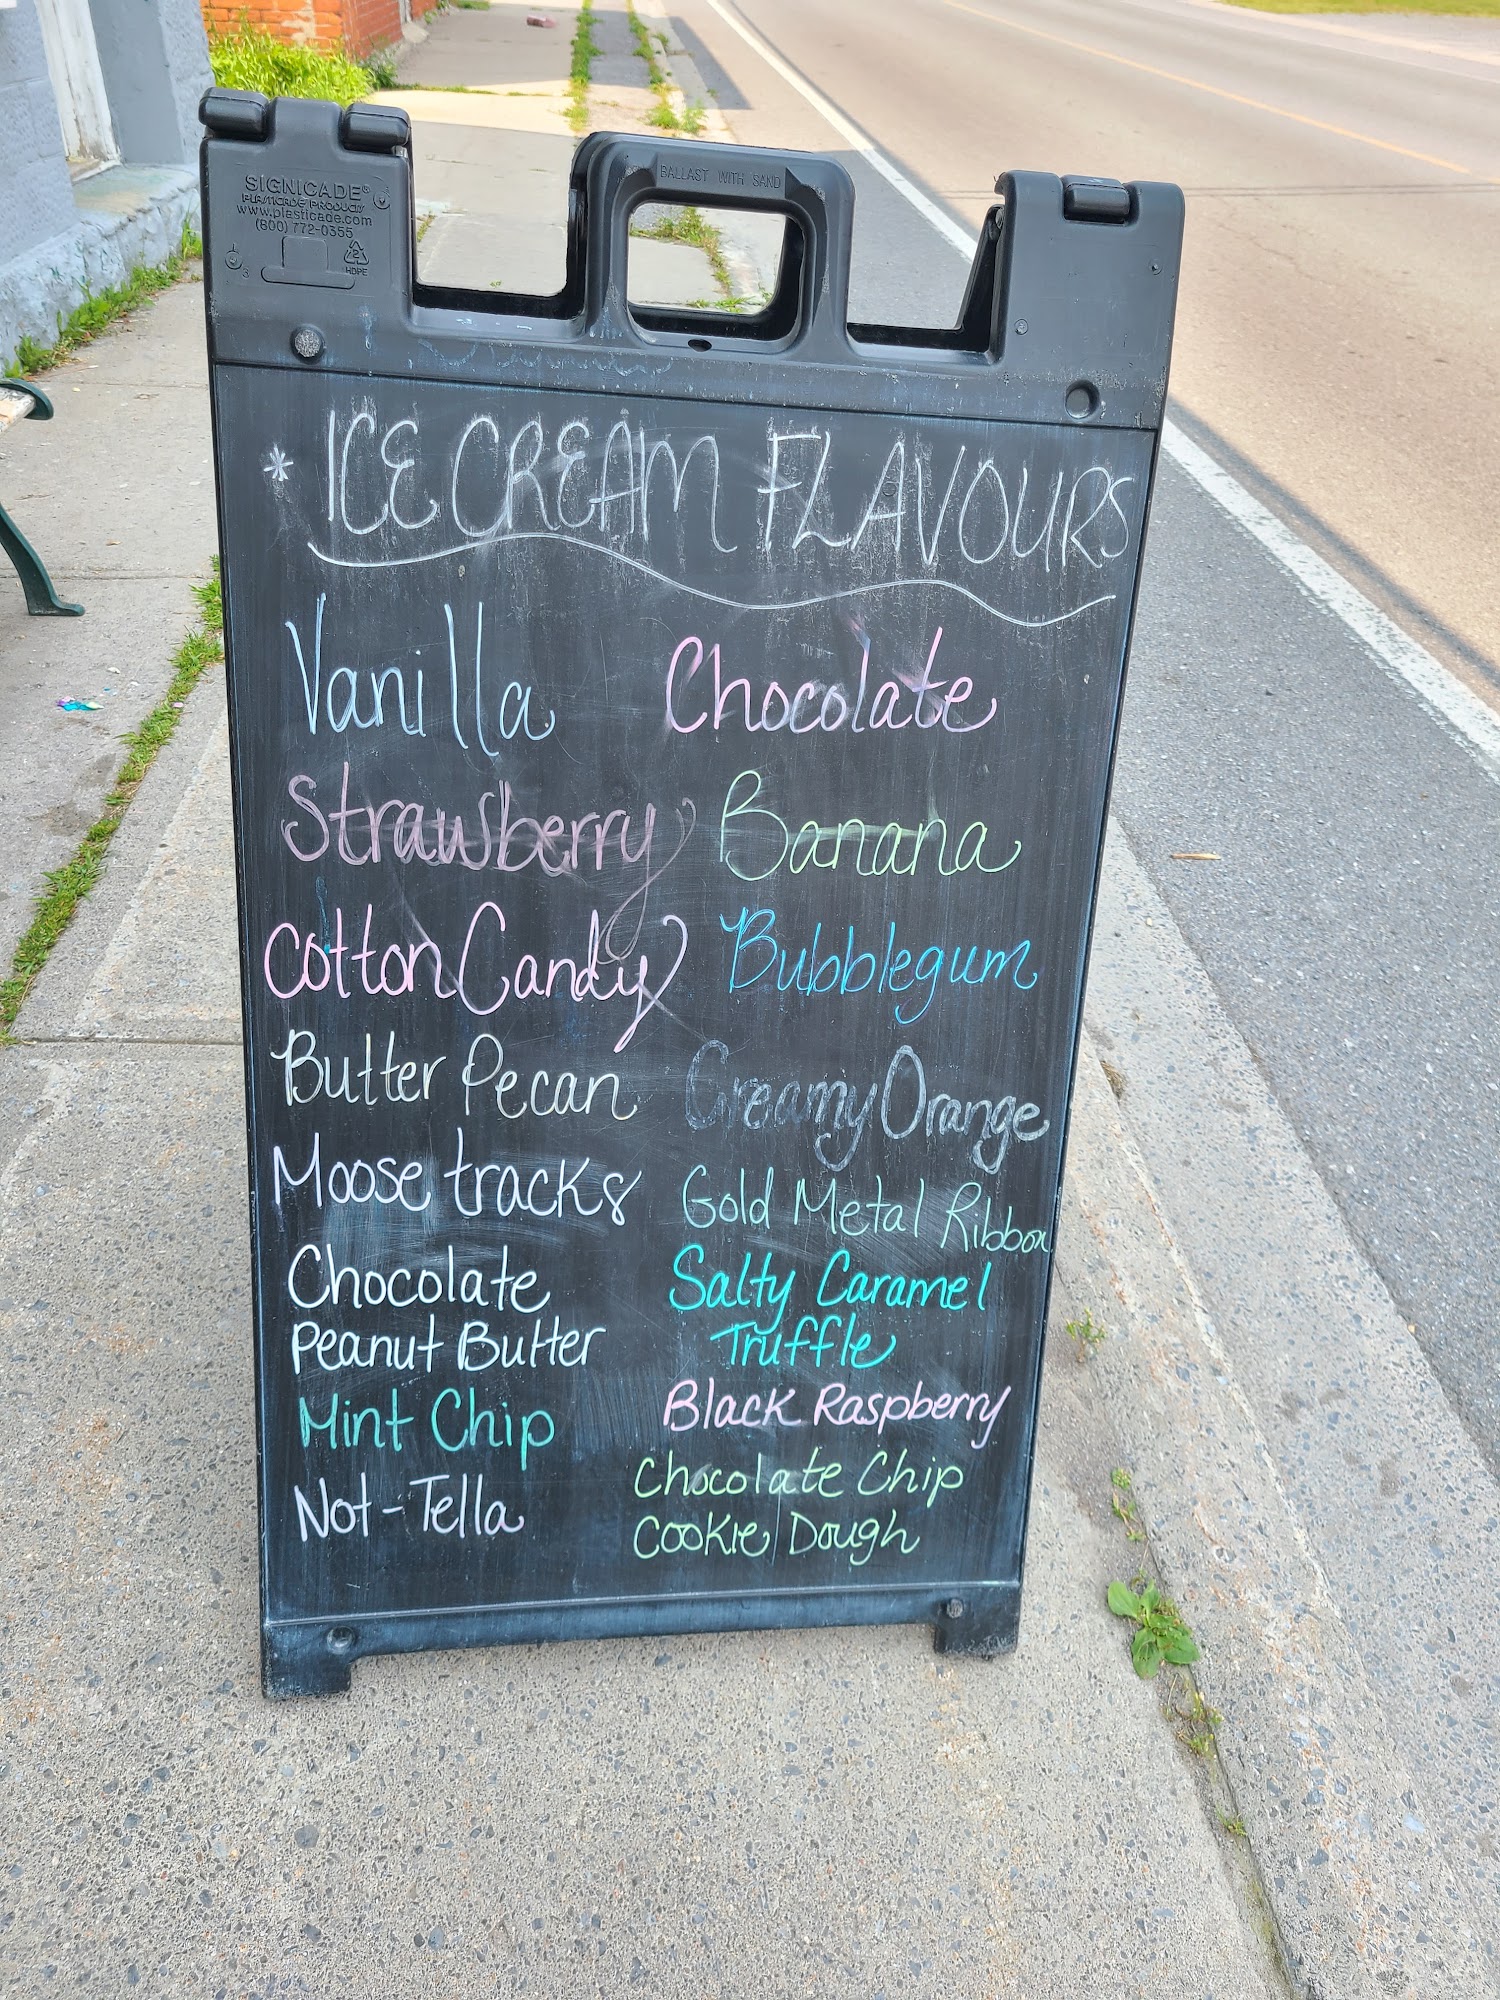 SIGNICADE®
PLASTICADE PRODUCTS
www.plasticade.com
(800) 772-0355
HDPE
BALLAST WITH SAND
* ICE CREAM FLAVOURS
Vanilla Chocolate
Strawberry Banana
Cotton Candy Bubblegum
Butter Pecan Creamy Orange
Moose tracks Gold Metal Ribbon
Chocolate Salty Caramel
Peanut Butter Truffle
Mint Chip Black Raspberry
Not-Tella Chocolate Chip
Cookie Dough